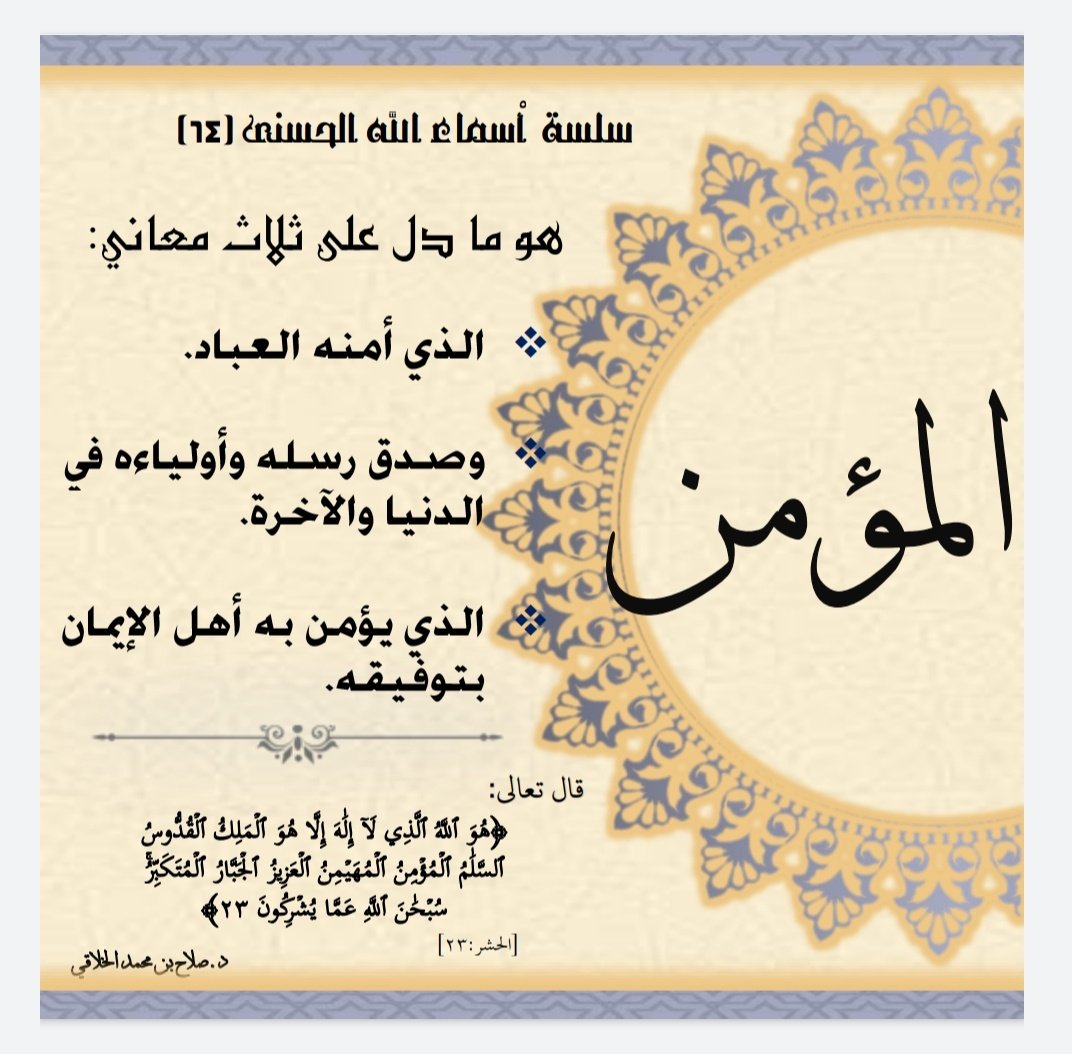 سلسة أسماء الله الحسنى (٦٤)
هو ما دل على ثلاث معاني:
الذي أمنه العباد.
وصدق رسله وأولياءه في
الدنيا والآخرة.
الذي يؤمن به أهل الإيمان
بتوفيقه.
المؤمن
قال تعالى:
﴿هُوَ ٱللَّهُ ٱلَّذِي لَآ إِلَٰهَ إِلَّا هُوَ ٱلۡمَلِكُ ٱلۡقُدُّوسُ
ٱلسَّلَٰمُ ٱلۡمُؤۡمِنُ ٱلۡمُهَيۡمِنُ ٱلۡعَزِيزُ ٱلۡجَبَّارُ ٱلۡمُتَكَبِّرُۚ
سُبۡحَٰنَ ٱللَّهِ عَمَّا يُشۡرِكُونَ ٢٣﴾
[الحشر:٢٣]
د.صلاح بن محمد الخلاقي